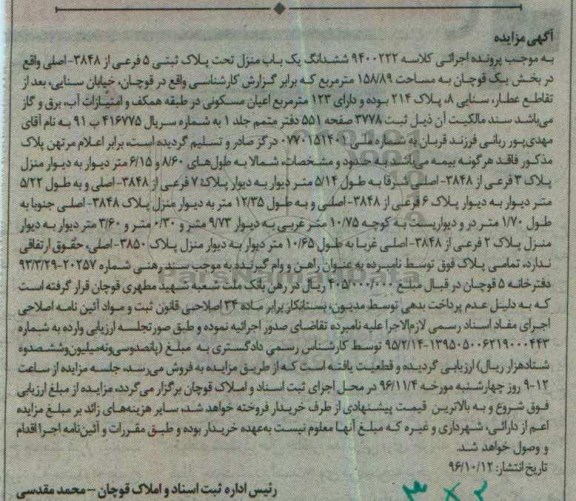 آگهی مزایده
به موجب پرونده اجرائی کلاسه ۹۴۰۰۲۲۲ ششدانگ یک باب منزل تحت پلاک ثبتی ۵ فرعی از ۳۸۴۸- اصلی واقع
در بخش یک قوچان به مساحت ۱۵۸/۸۹ مترمربع که برابر گزارش کارشناسی واقع در قوچان، خیابان سنایی، بعد از
تقاطع عطار، سنایی ۸، پلاک ۲۱۴ بوده و دارای ۱۲۳ مترمربع اعیان مسکونی در طبقه همکف و امتیازات آب، برق و گاز
می‌باشد سند مالکیت آن ذیل ثبت ۳۷۷۸ صفحه ۵۵۱ دفتر متمم جلد ۱ به شماره سریال ۴۱۶۷۷۵ ب ۹۱ به نام آقای
مهدی‌پور ربانی فرزند قربان به شماره ملی ۰۷۷۰۱۵۱۴۰۱ درگز صادر و تسلیم گردیده است، برابر اعلام مرتهن پلاک
مذکور فاقد هرگونه بیمه می‌باشد به حدود و مشخصات، شمالا به طول‌های ۸/۶۰ و ۶/۱۵ متر دیوار به دیوار منزل
پلاک ۳ فرعی از ۳۸۴۸- اصلی شرقا به طول ۵/۱۴ متر دیوار به دیوار پلاک ۷ فرعی از ۳۸۴۸- اصلی و به طول ۵/۲۲
متر دیوار به دیوار پلاک ۶ فرعی از ۳۸۴۸- اصلی و به طول ۱۲/۳۵ متر به دیوار منزل پلاک ۳۸۴۸- اصلی جنوبا به
طول ۱/۷۰ متر در و دیواریست به کوچه ۱۰/۷۵ متر غربی به دیوار ۹/۷۳ متر و ۰/۳۰ متر و ۳/۶۰ متر دیوار به دیوار
منزل پلاک ۲ فرعی از ۳۸۴۸- اصلی غربا به طول ۱۰/۶۵ متر دیوار به دیوار منزل پلاک ۳۸۵۰- اصلی، حقوق ارتفاقی
ندارد، تمامی پلاک فوق توسط نامبرده به عنوان راهن و وام گیرنده به موجب سند رهنی شماره ۲۰۲۵۷-۹۳/۳/۲۹
دفترخانه ۵ قوچان در قبال مبلغ ۴۰۵/۰۰۰/۰۰۰ ریال در رهن بانک ملت شعبه شهید مطهری قوچان قرار گرفته است
که به دلیل عدم پرداخت بدهی توسط مدیون، بستانکار برابر ماده ۳۴ اصلاحی قانون ثبت و مواد آئین نامه اصلاحی
اجرای مفاد اسناد رسمی لازم‌الاجرا علیه نامبرده تقاضای صدور اجرائیه نموده و طبق صورتجلسه ارزیابی وارده به شماره
۱۳۹۵۰۵۰۰۶۲۱۹۰۰۰۴۴۳-۹۵/۲/۱۴ توسط کارشناس رسمی دادگستری به مبلغ (پانصدوسی‌ونه‌میلیون‌وششصدو
شتادهزار ریال) ارزیابی گردیده و قطعیت یافته است که از طریق مزایده به فروش می‌رسد، جلسه مزایده از ساعت
۹-۱۲ روز چهارشنبه مورخه ۹۶/۱۱/۴ در محل اجرای ثبت اسناد و املاک قوچان برگزار می‌گردد، مزایده از مبلغ ارزیابی
فوق شروع و به بالاترین قیمت پیشنهادی از طرف خریدار فروخته خواهد شد، سایر هزینه‌های زائد بر مبلغ مزایده
اعم از دارائی، شهرداری و غیره که مبلغ آنها معلوم نیست به‌عهده خریدار بوده و طبق مقررات و آئین‌نامه اجرا اقدام
و وصول خواهد شد.
تاریخ انتشار: ۹۶/۱۰/۱۲
رئیس اداره ثبت اسناد و املاک قوچان – محمد مقدسی